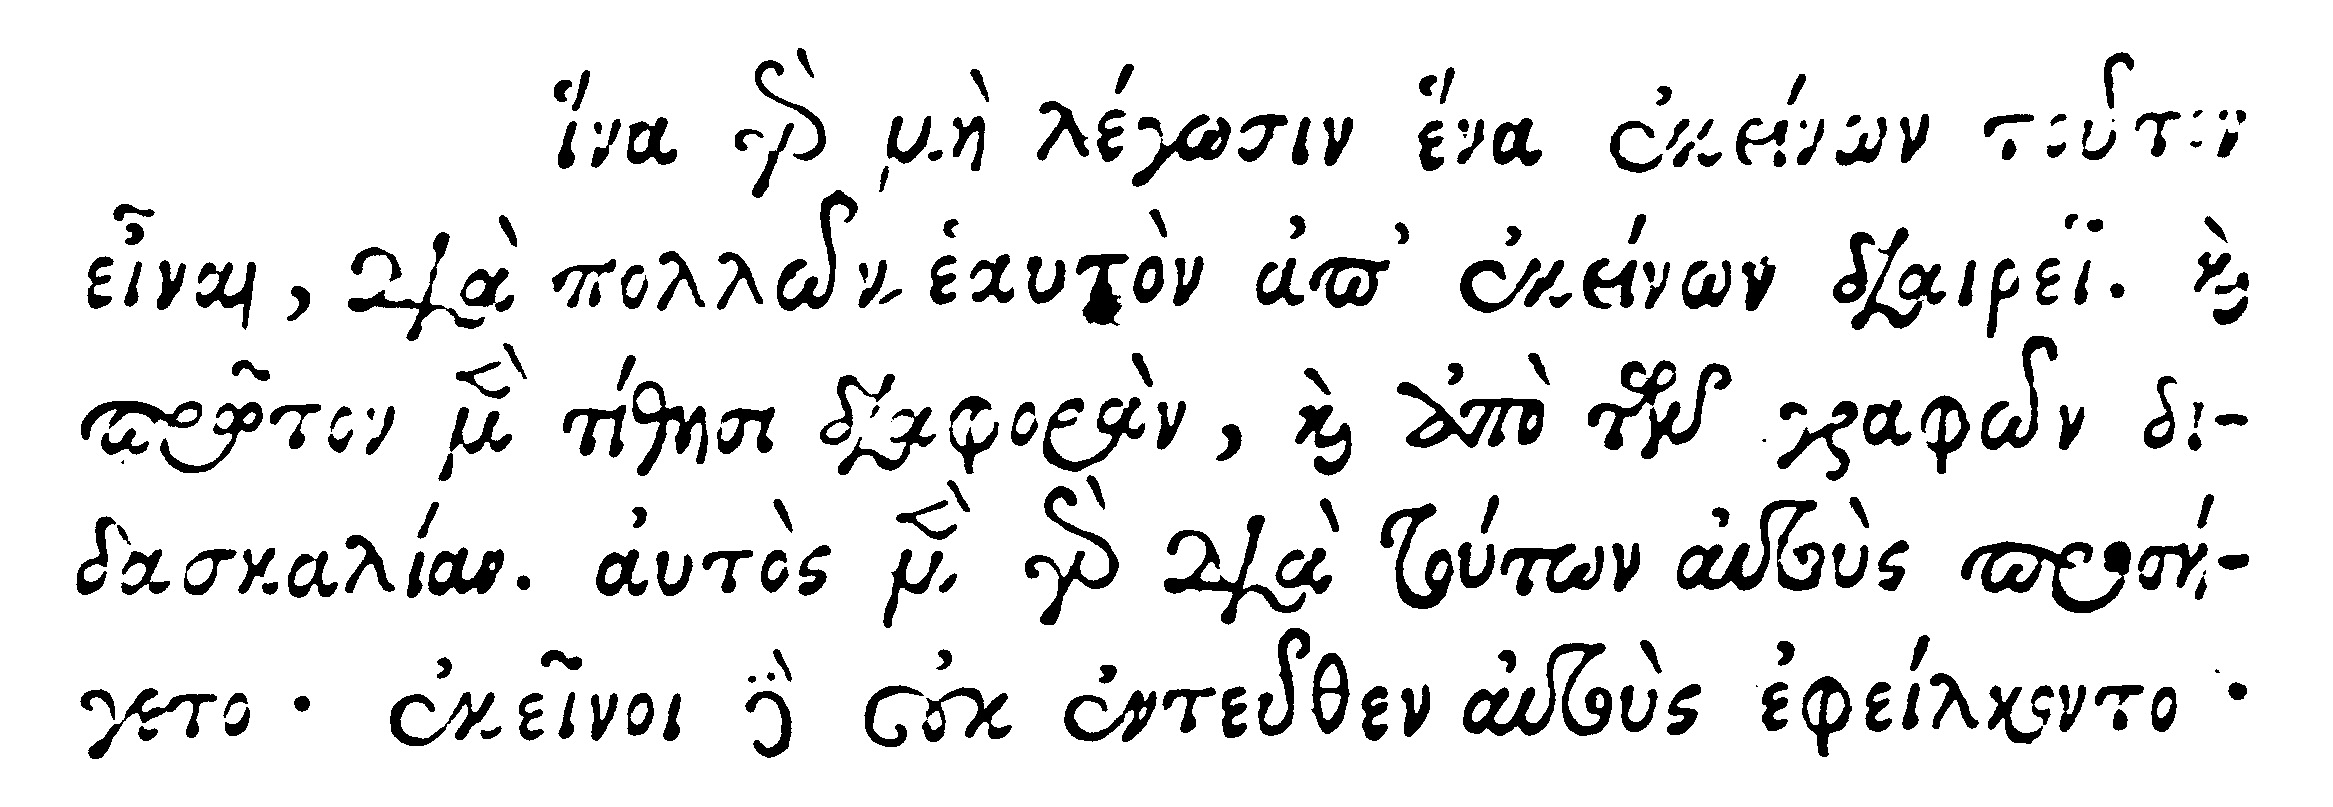 ἵνα γὰρ μὴ λέγωσιν ἕνα ἐκείνων τοῦτον
εἶναι, διὰ πολλῶν ἑαυτὸν ἀπ' ἐκείνων διαιρεῖ. καὶ
πρῶτον μὲν τίθησι διαφορὰν, καὶ ἀπὸ τῶν γραφῶν δι-
δασκαλίας. αὐτὸς μὲν γὰρ διὰ τούτων αὐτοὺς προσή-
γετο. ἐκεῖνοι δὲ οὐκ ἐντεῦθεν αὐτοὺς ἐφείλκοντο.